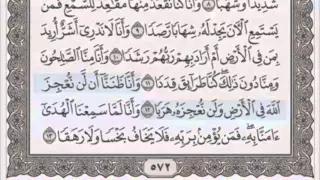 شَدِيدًا وَشُهُبًا ٨ وَأَنَّا كُنَّا نَقْعُدُ مِنْهَا مَقَٰعِدَ لِلسَّمْعِ فَمَن
يَسْتَمِعِ ٱلْءَانَ يَجِدْ لَهُۥ شِهَابًا رَّصَدًا ٩ وَأَنَّا لَا نَدْرِىٓ أَشَرٌّ أُرِيدَ
بِمَن فِى ٱلْأَرْضِ أَمْ أَرَادَ بِهِمْ رَبُّهُمْ رَشَدًا ١٠ وَأَنَّا مِنَّا ٱلصَّٰلِحُونَ
وَمِنَّا دُونَ ذَٰلِكَ كُنَّا طَرَآئِقَ قِدَدًا ١١ وَأَنَّا ظَنَنَّآ أَن لَّن نُّعْجِزَ
ٱللَّهَ فِى ٱلْأَرْضِ وَلَن نُّعْجِزَهُۥ هَرَبًا ١٢ وَأَنَّا لَمَّا سَمِعْنَا ٱلْهُدَىٰٓ
ءَامَنَّا بِهِۦ فَمَن يُؤْمِنۢ بِرَبِّهِۦ فَلَا يَخَافُ بَخْسًا وَلَا رَهَقًا ١٣
٥٧٢